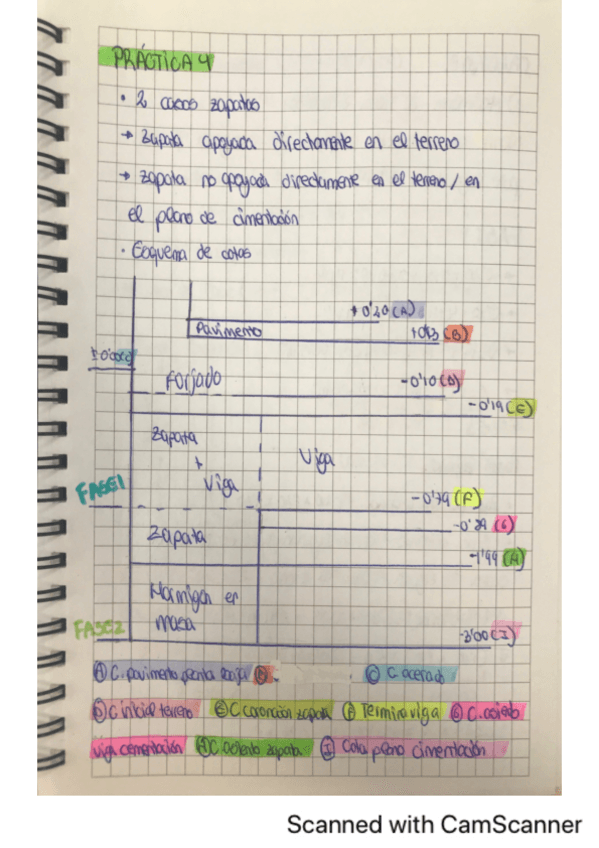 PRÁCTICA 4
• 2 casos zapatas
→ Zapata apoyada directamente en el terreno
→ zapata no apoyada directamente en el terreno / en
el plano de cimentación
• Esquema de cotas
+0'20 (A)
Pavimento
+0'13 (B)
±0'00 (C)
Forjado
-0'10 (D)
-0'19 (E)
Zapata
+
Viga
Viga
FASE 1
-0'79 (F)
(G)
Zapata
-1'99 (H)
Hormigón en
masa
FASE 2
-3'00 (I)
(A) C. pavimento planta baja (B)
(C) C acerado
(D) C inicial terreno (E) C coronación zapata (F) Termino viga (G) C. asiento
viga cimentación (H) C asiento zapata (I) Cota plano cimentación
Scanned with CamScanner